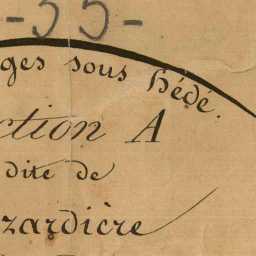 -55-
ges sous Hédé.
ction A
dite de
zardière